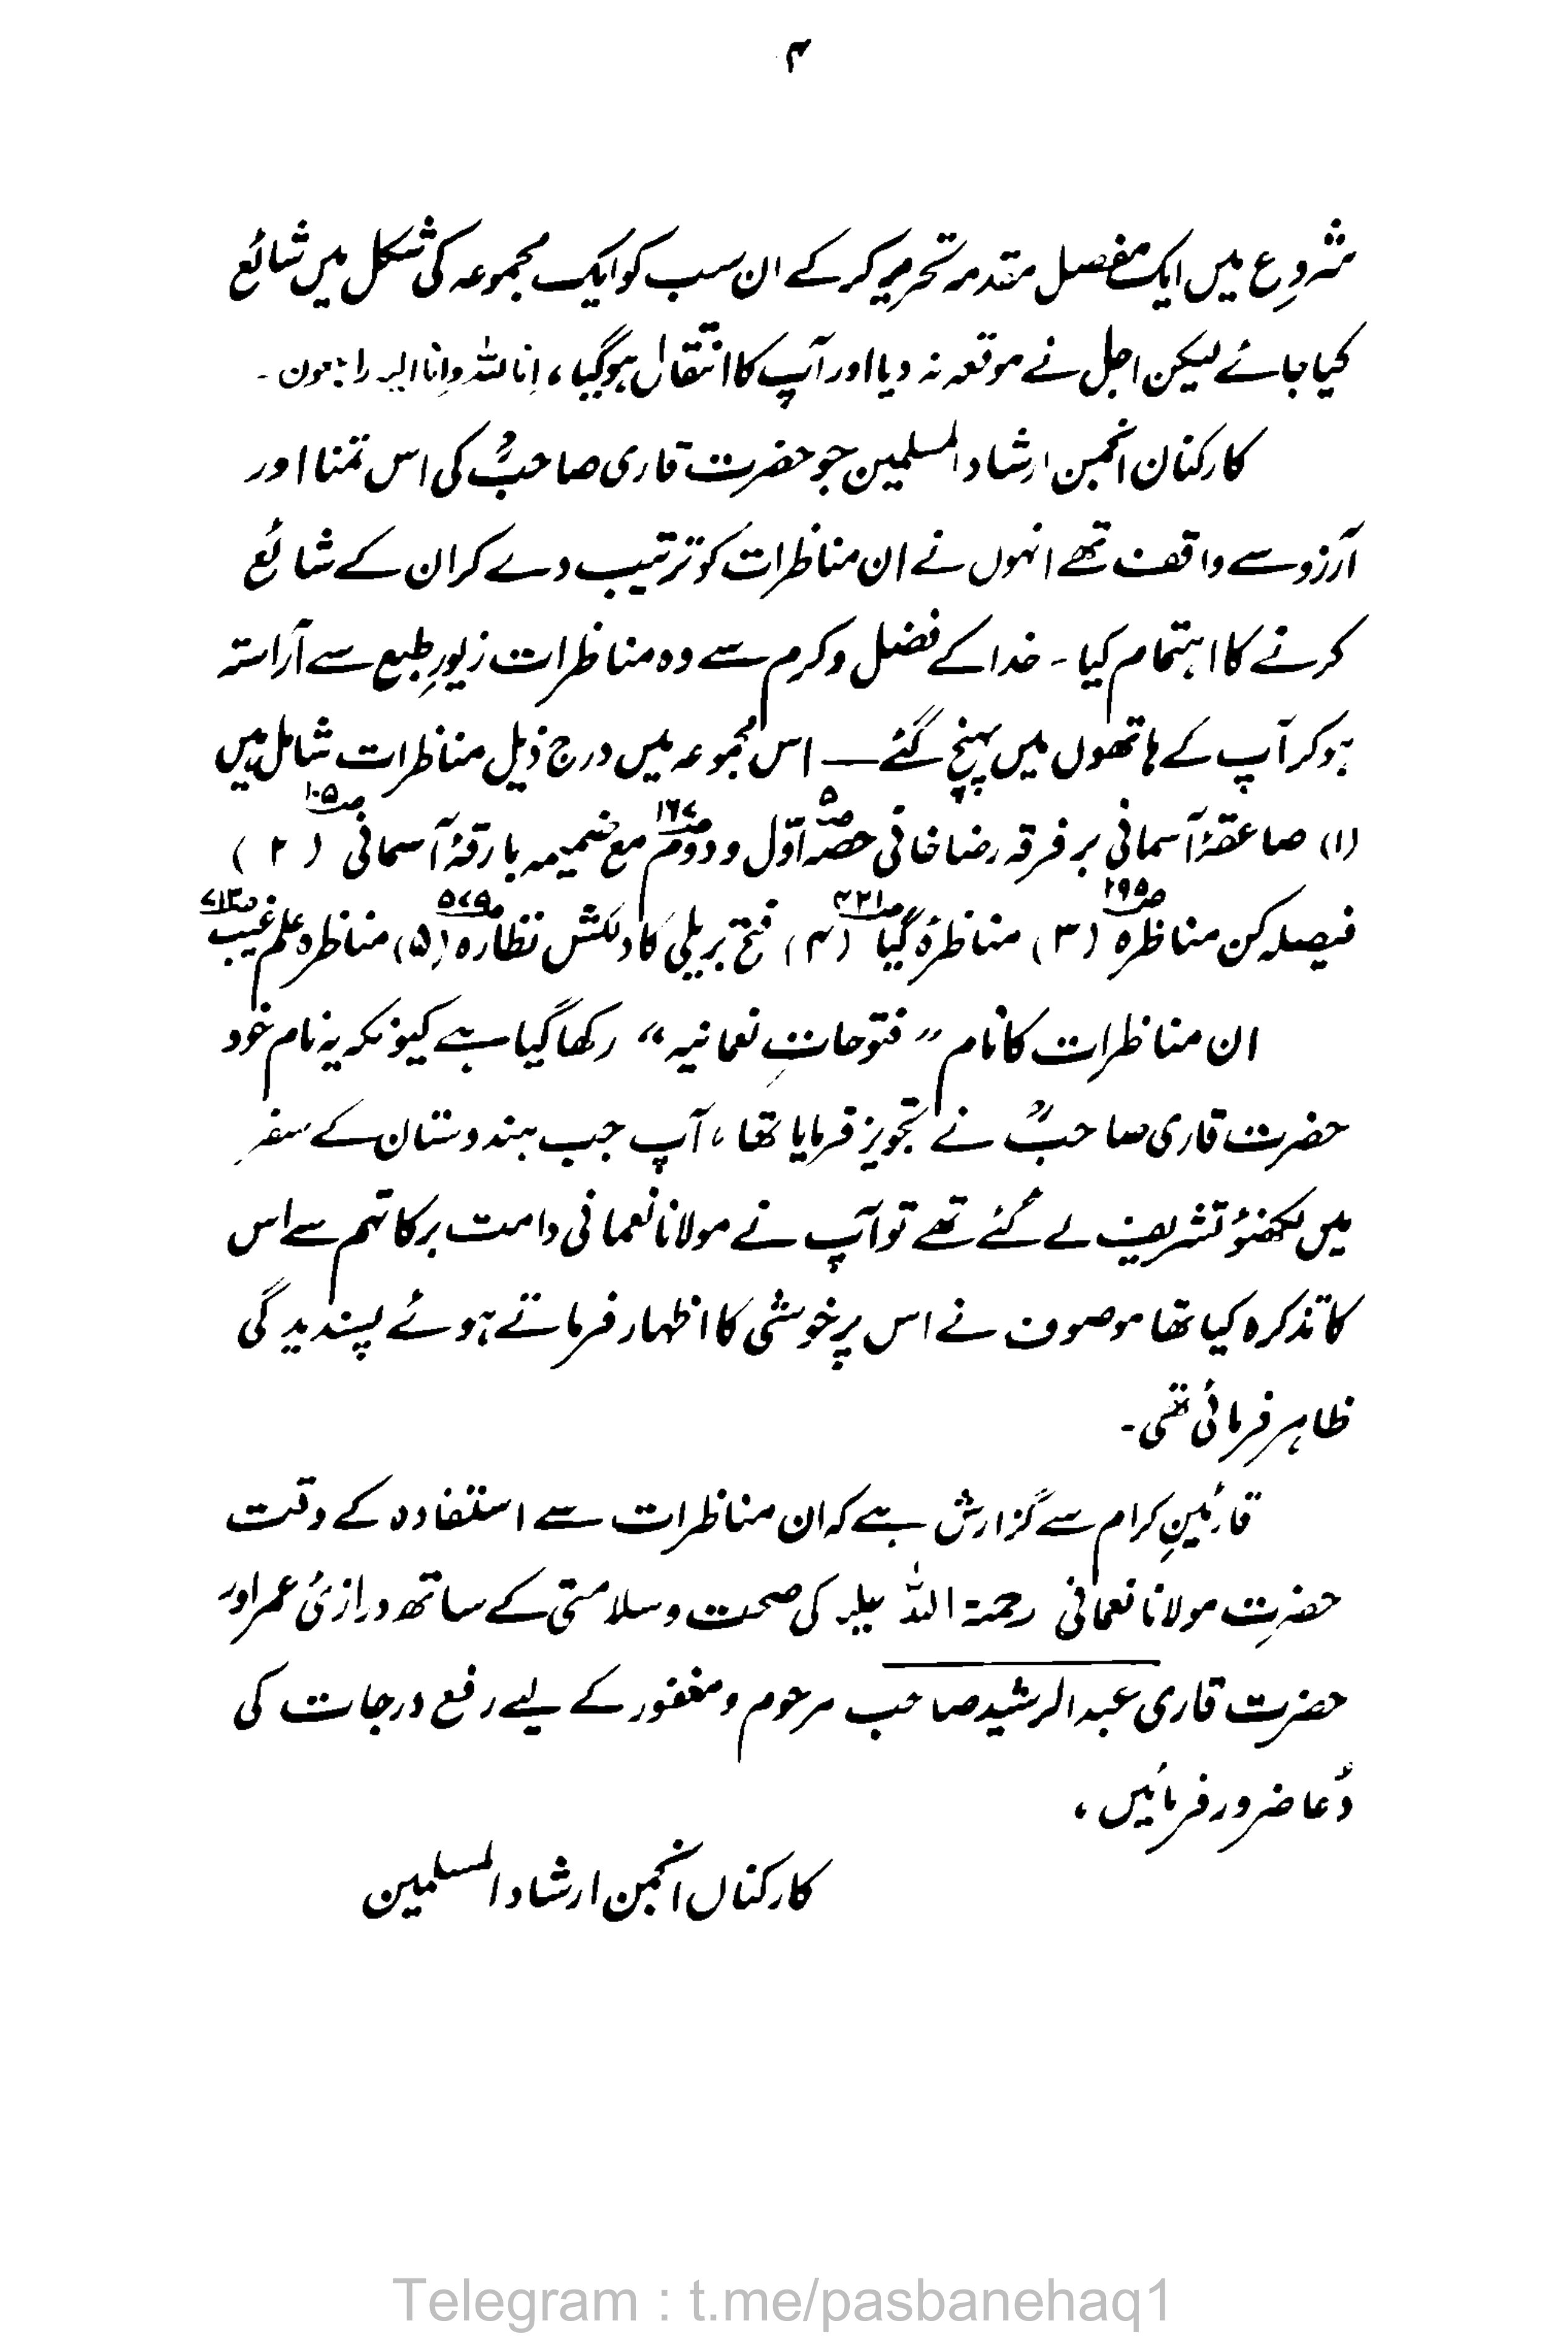 ۴
شروع میں ایک مفصل مقدمہ تحریر کر کے ان سب کو ایک مجموعہ کی شکل میں شائع
کیا جائے لیکن اجل نے موقعہ نہ دیا اور آپ کا انتقال ہوگیا، اِنا للہ واِنا الیہ راجعون۔
کارکنان انجمن ارشاد المسلمین جو حضرت قاری صاحبؒ کی اس تمنا اور
آرزو سے واقف تھے انہوں نے ان مناظرات کو ترتیب دے کر ان کے شائع
کرنے کا اہتمام کیا۔ خدا کے فضل و کرم سے وہ مناظرات زیورِ طبع سے آراستہ
ہو کر آپ کے ہاتھوں میں پہنچ گئے — اس مجموعہ میں درج ذیل مناظرات شامل ہیں
(۱) صاعقۂ آسمانی بر فرقہ رضاخانی حصہ اوّل ص۵ و دوم ص۱۶۷ مع ضمیمہ بارقۂ آسمانی ص۱۰۵ (۲)
فیصلہ کن مناظرہ ص۲۹۵ (۳) مناظرۂ گیا ص۳۳۱ (۴) فتح بریلی کا دلکش نظارہ ص۵۷۵ (۵) مناظرہ علم غیب ص۷۱۳
ان مناظرات کا نام ”فتوحاتِ نعمانیہ“ رکھا گیا ہے کیونکہ یہ نام خود
حضرت قاری صاحبؒ نے تجویز فرمایا تھا، آپ جب ہندوستان کے سفر
میں لکھنؤ تشریف لے گئے تھے تو آپ نے مولانا نعمانی دامت برکاتہم سے اس
کا تذکرہ کیا تھا موصوف نے اس پر خوشی کا اظہار فرماتے ہوئے پسندیدگی
ظاہر فرمائی تھی۔
قارئینِ کرام سے گزارش ہے کہ ان مناظرات سے استفادہ کے وقت
حضرت مولانا نعمانی رحمۃ اللہ علیہ کی صحت و سلامتی کے ساتھ درازئ عمر اور
حضرت قاری عبد الرشید صاحب مرحوم و مغفور کے لیے رفع درجات کی
دُعا ضرور فرمائیں،
کارکناں انجمن ارشاد المسلمین
Telegram : t.me/pasbanehaq1